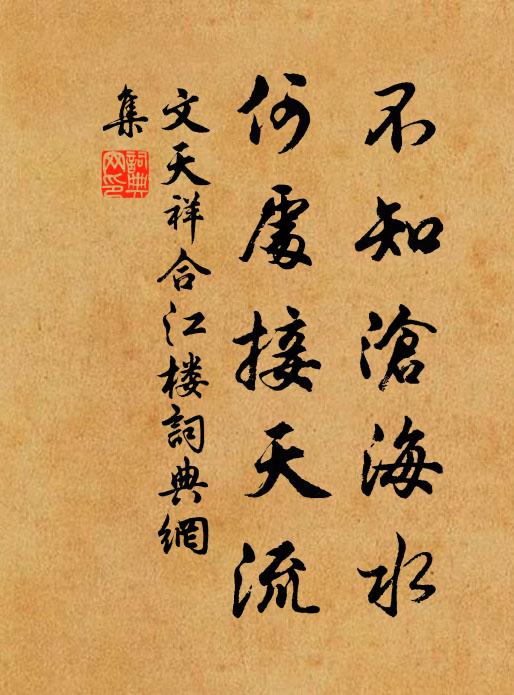 不知滄海水
何處接天流
文天祥合江楼詞典網
集
詞典
网印